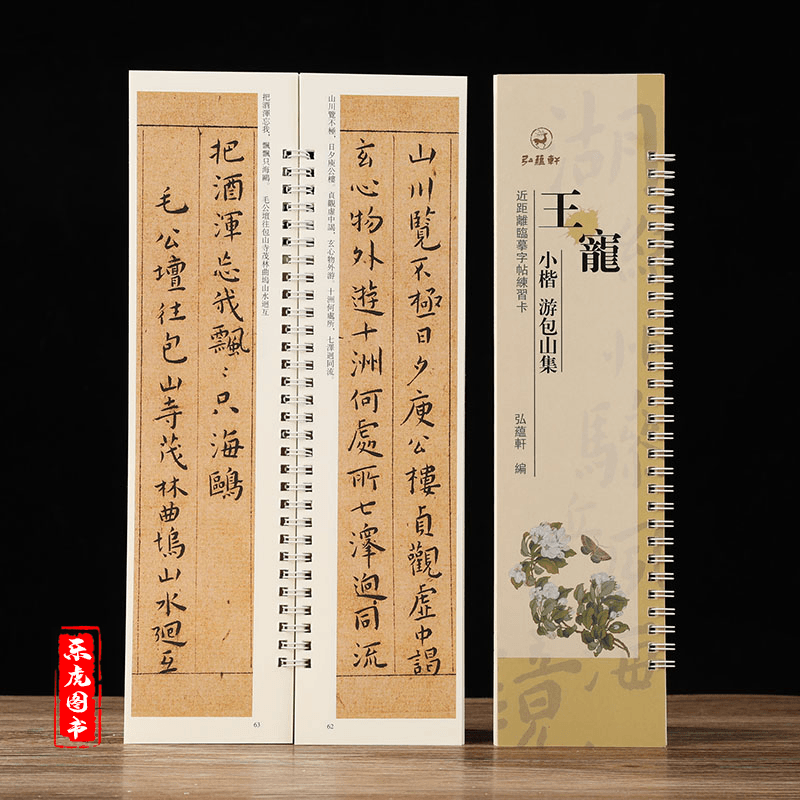 弘蘊軒
王寵
小楷 游包山集
近距離臨摹字帖練習卡
弘蘊軒 編
山川覽不極日夕庾公樓貞觀虛中謁
玄心物外遊十洲何處所七澤迥同流
山川覽不極，日夕庾公樓。貞觀虛中謁，玄心物外游。十洲何處所，七澤迥同流。
62
把酒渾忘我，飄飄只海鷗。 毛公壇往包山寺茂林曲塢山水迴互
把酒渾忘我飄〻只海鷗
毛公壇往包山寺茂林曲塢山水迴互
63
乐虎图书